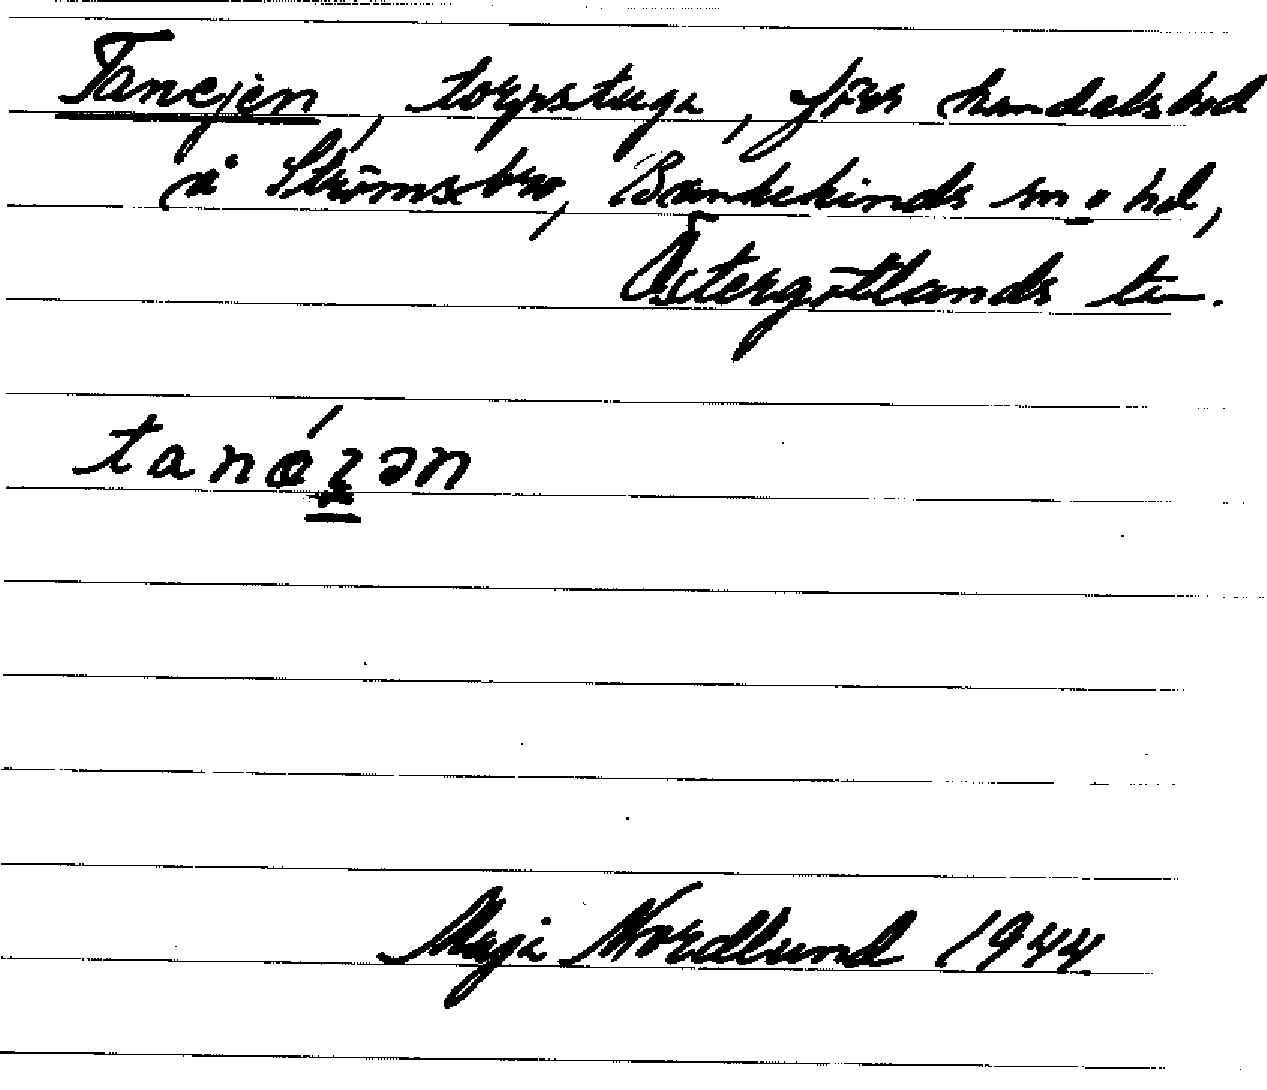 Tanejen, torpstuga, förr handelsbod
å Strömsbro, Bankekinds sn o hd,
Östergötlands län.
Maja Nordlund 1944